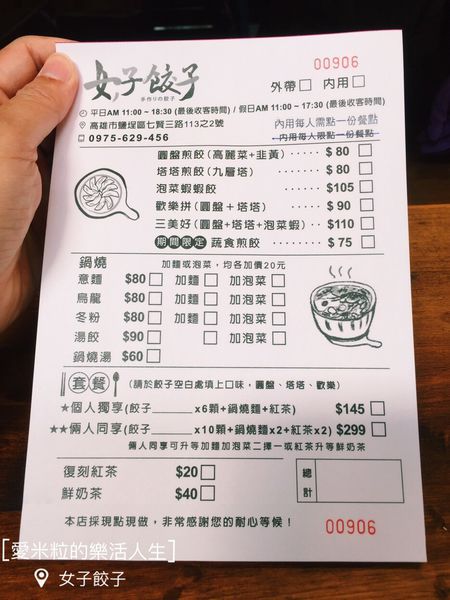 00906
女子餃子
手作りの餃子
外帶 內用
平日AM 11:00 ~ 18:30 (最後收客時間) / 假日AM 11:00 ~ 17:30 (最後收客時間)
高雄市鹽埕區七賢三路113之2號
內用每人需點一份餐點
0975-629-456
內用每人限點一份餐點
圓盤煎餃(高麗菜+韭黃) $ 80
塔塔煎餃(九層塔) $ 80
泡菜蝦蝦餃 $105
歡樂拼(圓盤+塔塔) $ 90
三美好(圓盤+塔塔+泡菜蝦) $110
期間限定 蔬食煎餃 $ 75
鍋燒 加麵或泡菜,均各加價20元
意麵 $80 加麵 加泡菜
烏龍 $80 加麵 加泡菜
冬粉 $80 加麵 加泡菜
湯餃 $90 加泡菜
鍋燒湯 $60
套餐 (請於餃子空白處填上口味,圓盤、塔塔、歡樂)
★個人獨享(餃子______x6顆+鍋燒麵+紅茶) $145
★★倆人同享(餃子______x10顆+鍋燒麵x2+紅茶x2) $299
倆人同享可升等加麵加泡菜二擇一或紅茶升等鮮奶茶
復刻紅茶 $20
鮮奶茶 $40
總計
本店採現點現做,非常感謝您的耐心等候!
00906
[愛米粒的樂活人生]
女子餃子